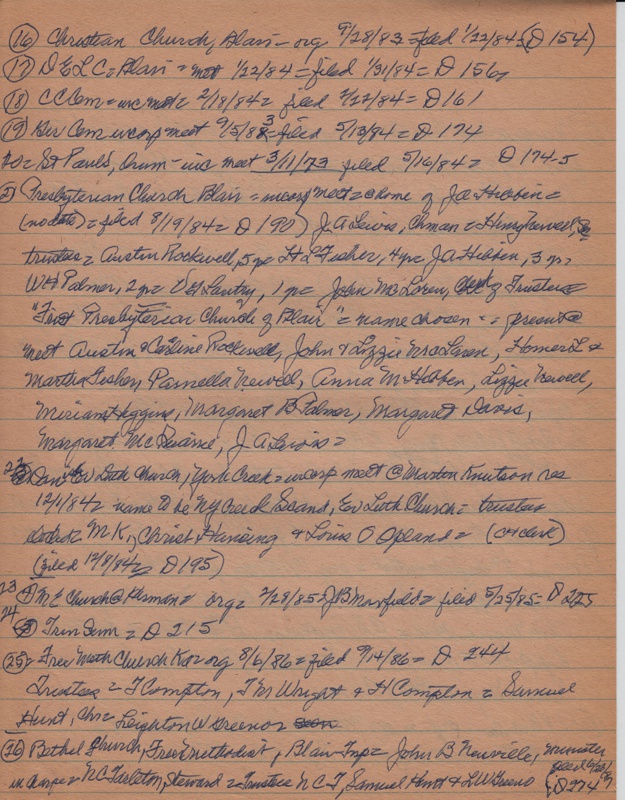 (16) Christian Church, Blair = org 9/28/83 = filed 1/22/84 = (D 154)
(17) D E L C = Blair = 1/22/84 = filed 1/31/84 = D 156
(18) C C Cem = inc meet = 2/18/84 = filed 2/22/84 = D 161
(19) Ger Cem incorp meet 9/5/83 = filed 5/13/84 = D 174
= St Pauls, Orum - inc meet 3/11/73 filed 5/16/84 = D 174-5
Presbyterian Church Blair = incorp meet = @ home of J A Hibben =
(no date) = filed 8/19/84 = D 190) J. A Lewis, Chman = Henry Newell,
trustees = Austin Rockwell, 5 yr = H L Fisher, 4 yr = J A Hibben, 3 yr =
W H Palmer, 2 yr = Lantry, 1 yr = John McLaren, of Trustees
"First Presbyterian Church of Blair" = name chosen = present @
meet Austin & Caroline Rockwell, John & Lizzie McLaren, Homer L &
Martha Fisher, Parnella Newell, Anna M Hibben, Lizzie Newell,
Miriam Higgins, Margaret B Palmer, Margaret Davis,
Margaret, J A Lewis =
22 Ev Luth Church, York Creek = incorp meet @ Marton Knutson res
12/1/84 = name to be Scand, Ev Luth Church = trustees
M K, Christ & Louis O Opland =
(filed 12/8/84 = D 195)
23 M E Church @ = org = 2/28/85 = J B Maxfield = filed 5/25/85 = D 225
24 Sem = D 215
(25) = Free Meth Church org 8/6/86 = filed 9/14/86 = D 244
Trustees = T Compton, T M Wright & H Compton = Samuel
Hunt, Chr = Leighton W
(26) Bethel Church, Free Methodist, Blair Twp = John B Neuville, minister
in charge = N C Tarleton, Steward = Trustees N C T, Samuel Hunt & L W
D 274